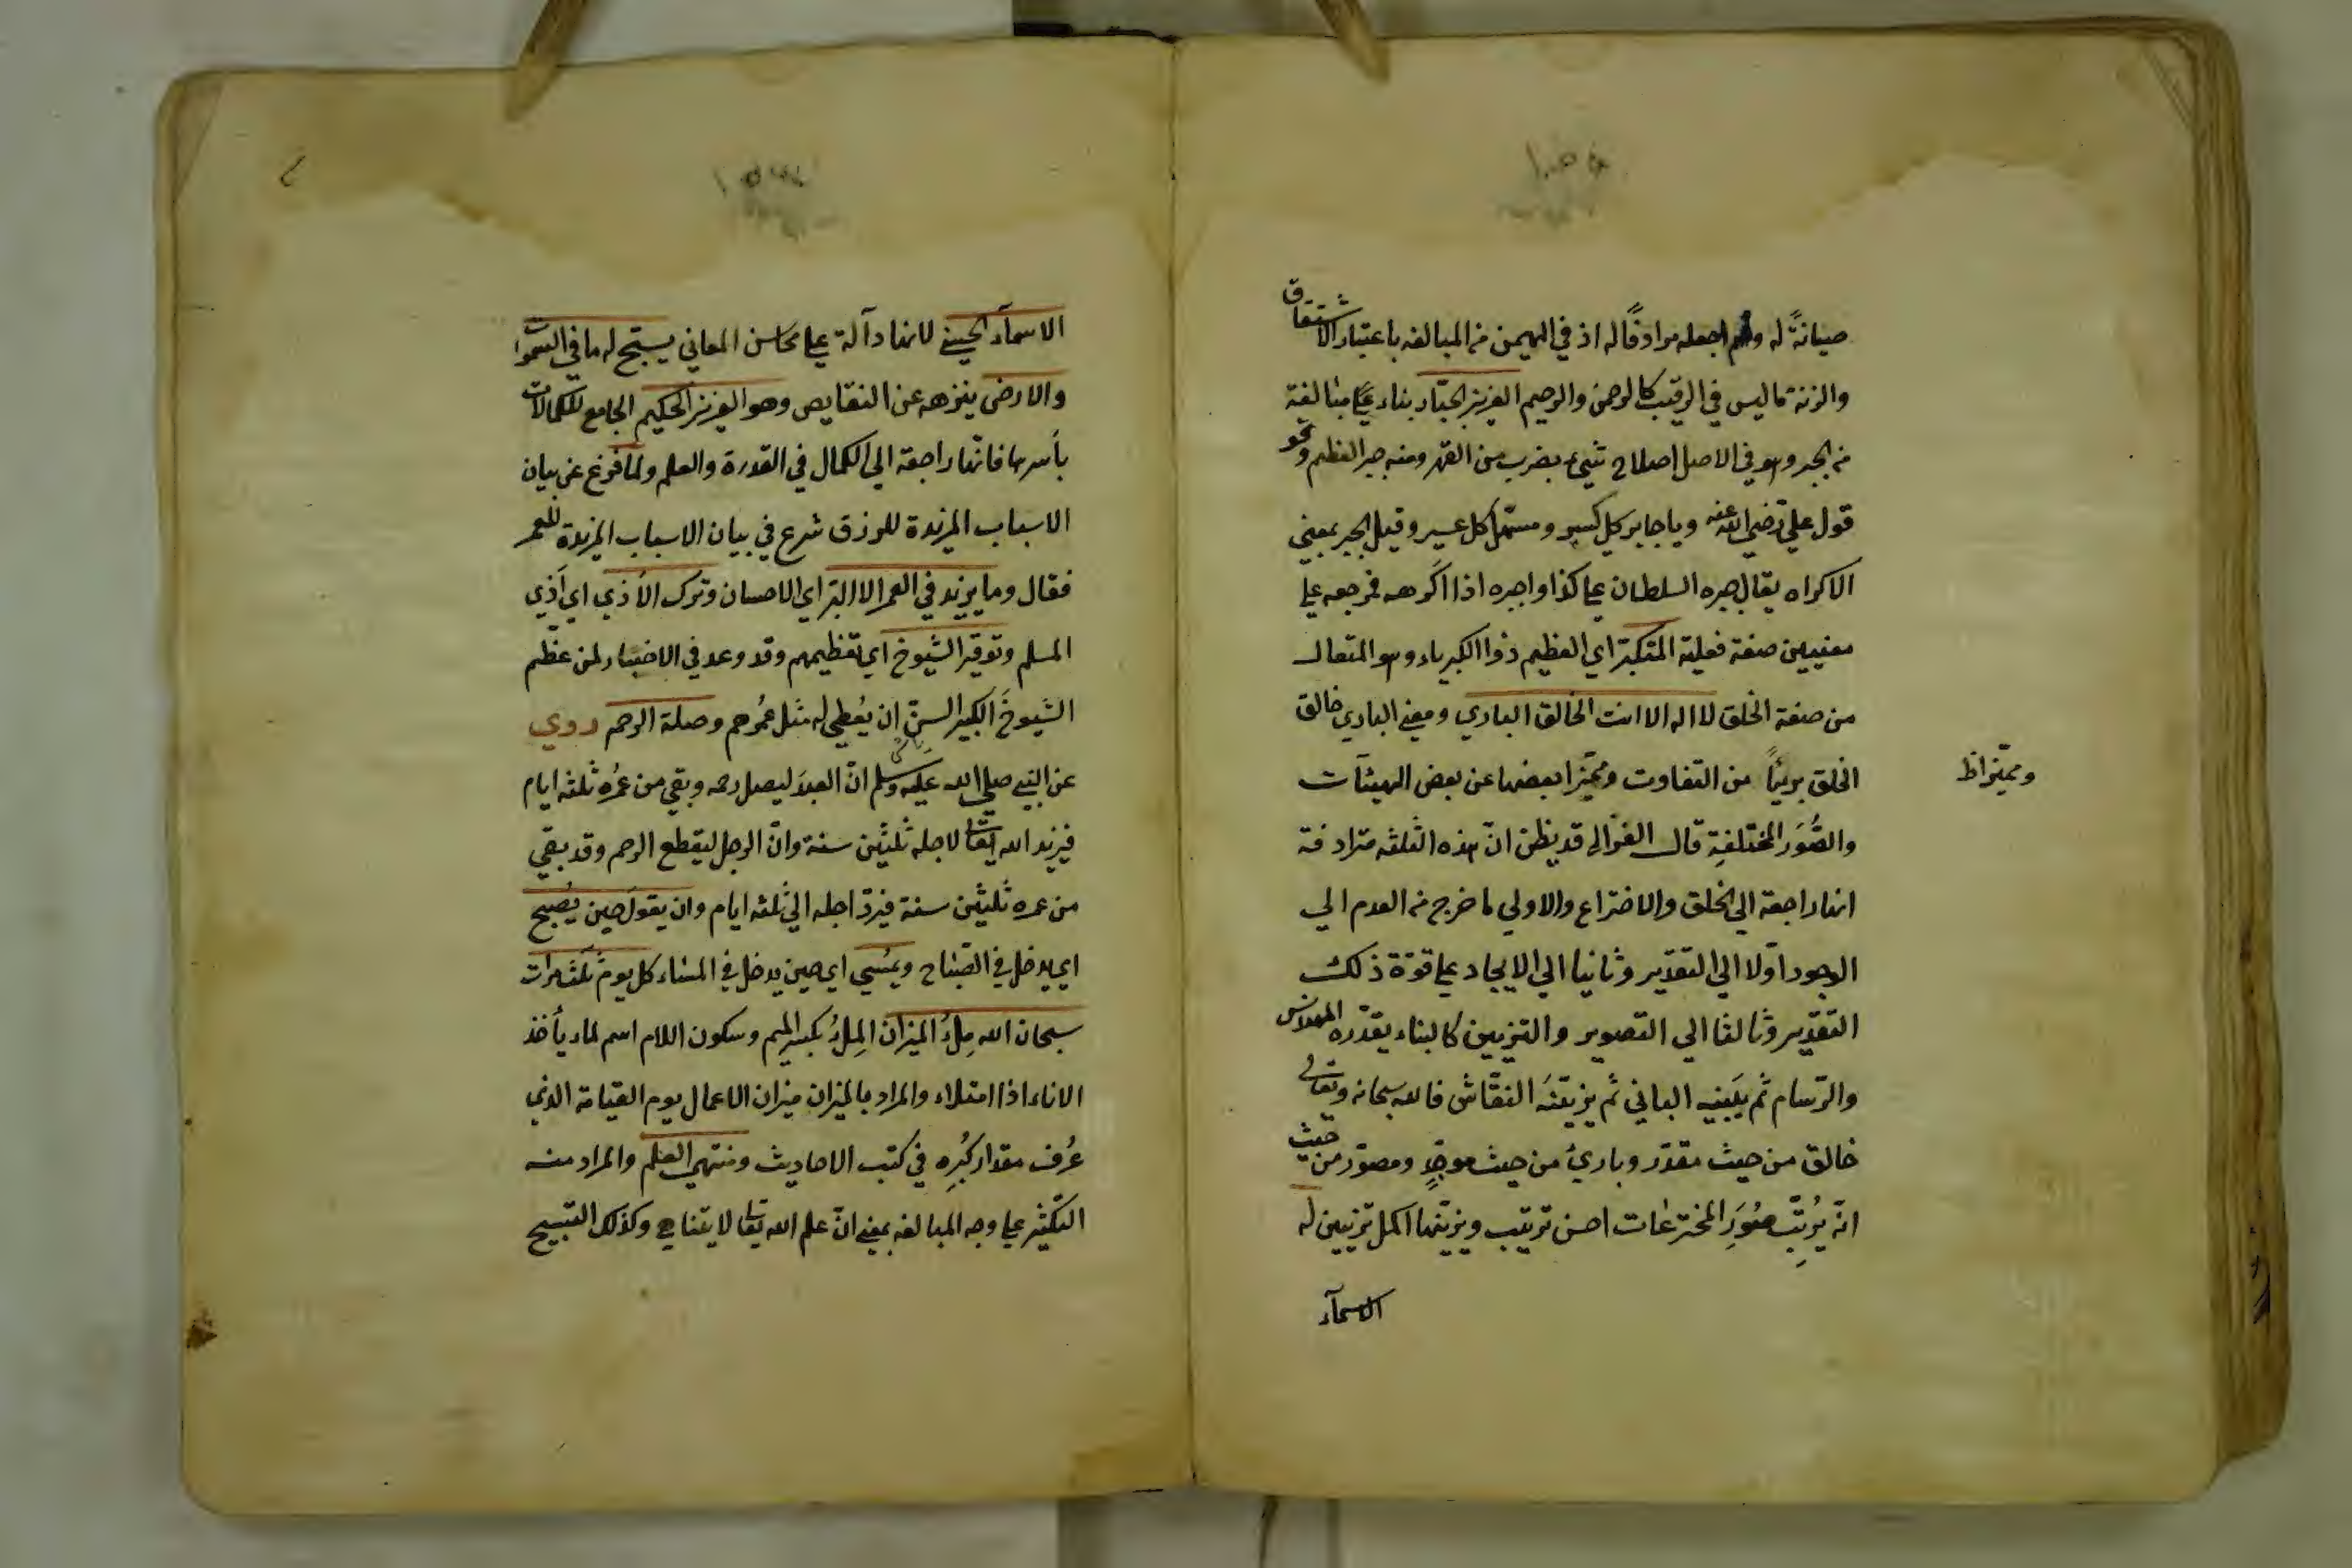 صيانةً له ولم اجعله مرادفًا له اذ في المهيمن من المبالغه باعتبار الاشتقاق
والزنة ما ليس في الرقيب كالرحمن والرحيم العزيز الجبّار بناء مبالغة
من الجبر وهو في الاصل اصلاح شيء بضرب من القهر ومنه جبر العظم ونحو
قول علي رضي الله عنه ويا جابر كل كسير ومسهّل كل عسير وقيل الجبر بمعني
الاكراه يقال جبره السلطان علي كذا واجبره اذا اكرهه فمرجعه علي
معنيين صفة فعلية المتكبّر اي العظيم ذو الكبرياء وهو المتعال
من صفة الخلق لا اله الا انت الخالق الباري ومعني الباري خالق
الخلق بريئًا من التفاوت ومميّزا بعضها عن بعض الهيئآت
ومميّزا ظ
والصُّوَر المختلفةِ قال الغزّالي قد يظن انّ هذه الثلثه مترادفة
انها راجعة الي الخلق والاختراع والاولي ما خرج من العدم الي
الوجود اوّلا الي التقدير وثانيا الي الايجاد علي قوّة ذلك
التقدير وثالثا الي التصوير والتزيين كالبناء يقدّره المهندس
والرّسام ثم يَبنيه الباني ثم يزيّنَه النقّاش فالله سبحانه وتعالي
خالق من حيث مقدّر وبارئ من حيث موجدٍ ومصوّر من حيث
انّه يُرتّب صُوَرَ المخترعات احسن ترتيب ويزيّنها اكمل تزيين له
الاسمآء
الاسمآء الحسني لانها دآلة علي محاسن المعاني يسبّح له ما في السموات
والارض ينزهه عن النقايص وهو العزيز الحكيم الجامع للكمالات
بأسرها فانّها راجعة الي الكمال في القدرة والعلم ولمّا فرغ عن بيان
الاسباب المزيدة للرزق شرع في بيان الاسباب المزيدة للعمر
فقال وما يزيد في العمر الا البرّ اي الاحسان وترك الأذي اي اَذي
المسلم وتوقير الشيوخ اي تعظيمهم وقد وعد في الاخبار لمن عظّم
الشيوخَ الكبير السنّ ان يُعطي له مثل عُمُرهم وصلة الرحم روي
عن النبي صلي الله عليه وسلم انّ العبدَ ليصل رحمه وبقي من عُمُرِه ثلثه ايام
فيزيد الله تعالي لاجله ثلثين سنة وانّ الرجل ليقطع الرحم وقد بقي
من عمره ثلثين سنة فيردّ اجله الي ثلثه ايام وان يقول حين يُصبح
اي يدخل في الصّباح ويُمسي اي حين يدخل في المساء كل يوم ثلث مرات
سبحان الله مِلأُ الميزان المِلأُ بكسر الميم وسكون اللام اسم لماء يأخذ
الاناء اذا امتلاء والمراد بالميزان ميزان الاعمال يوم القيامة الذي
عُرف مقدار كِبَرِه في كتب الاحاديث ومنتهي العلم والمراد منه
التكثير علي وجه المبالغه بمعني انّ علم الله تعالي لا يتناهي وكذلك التسبيح